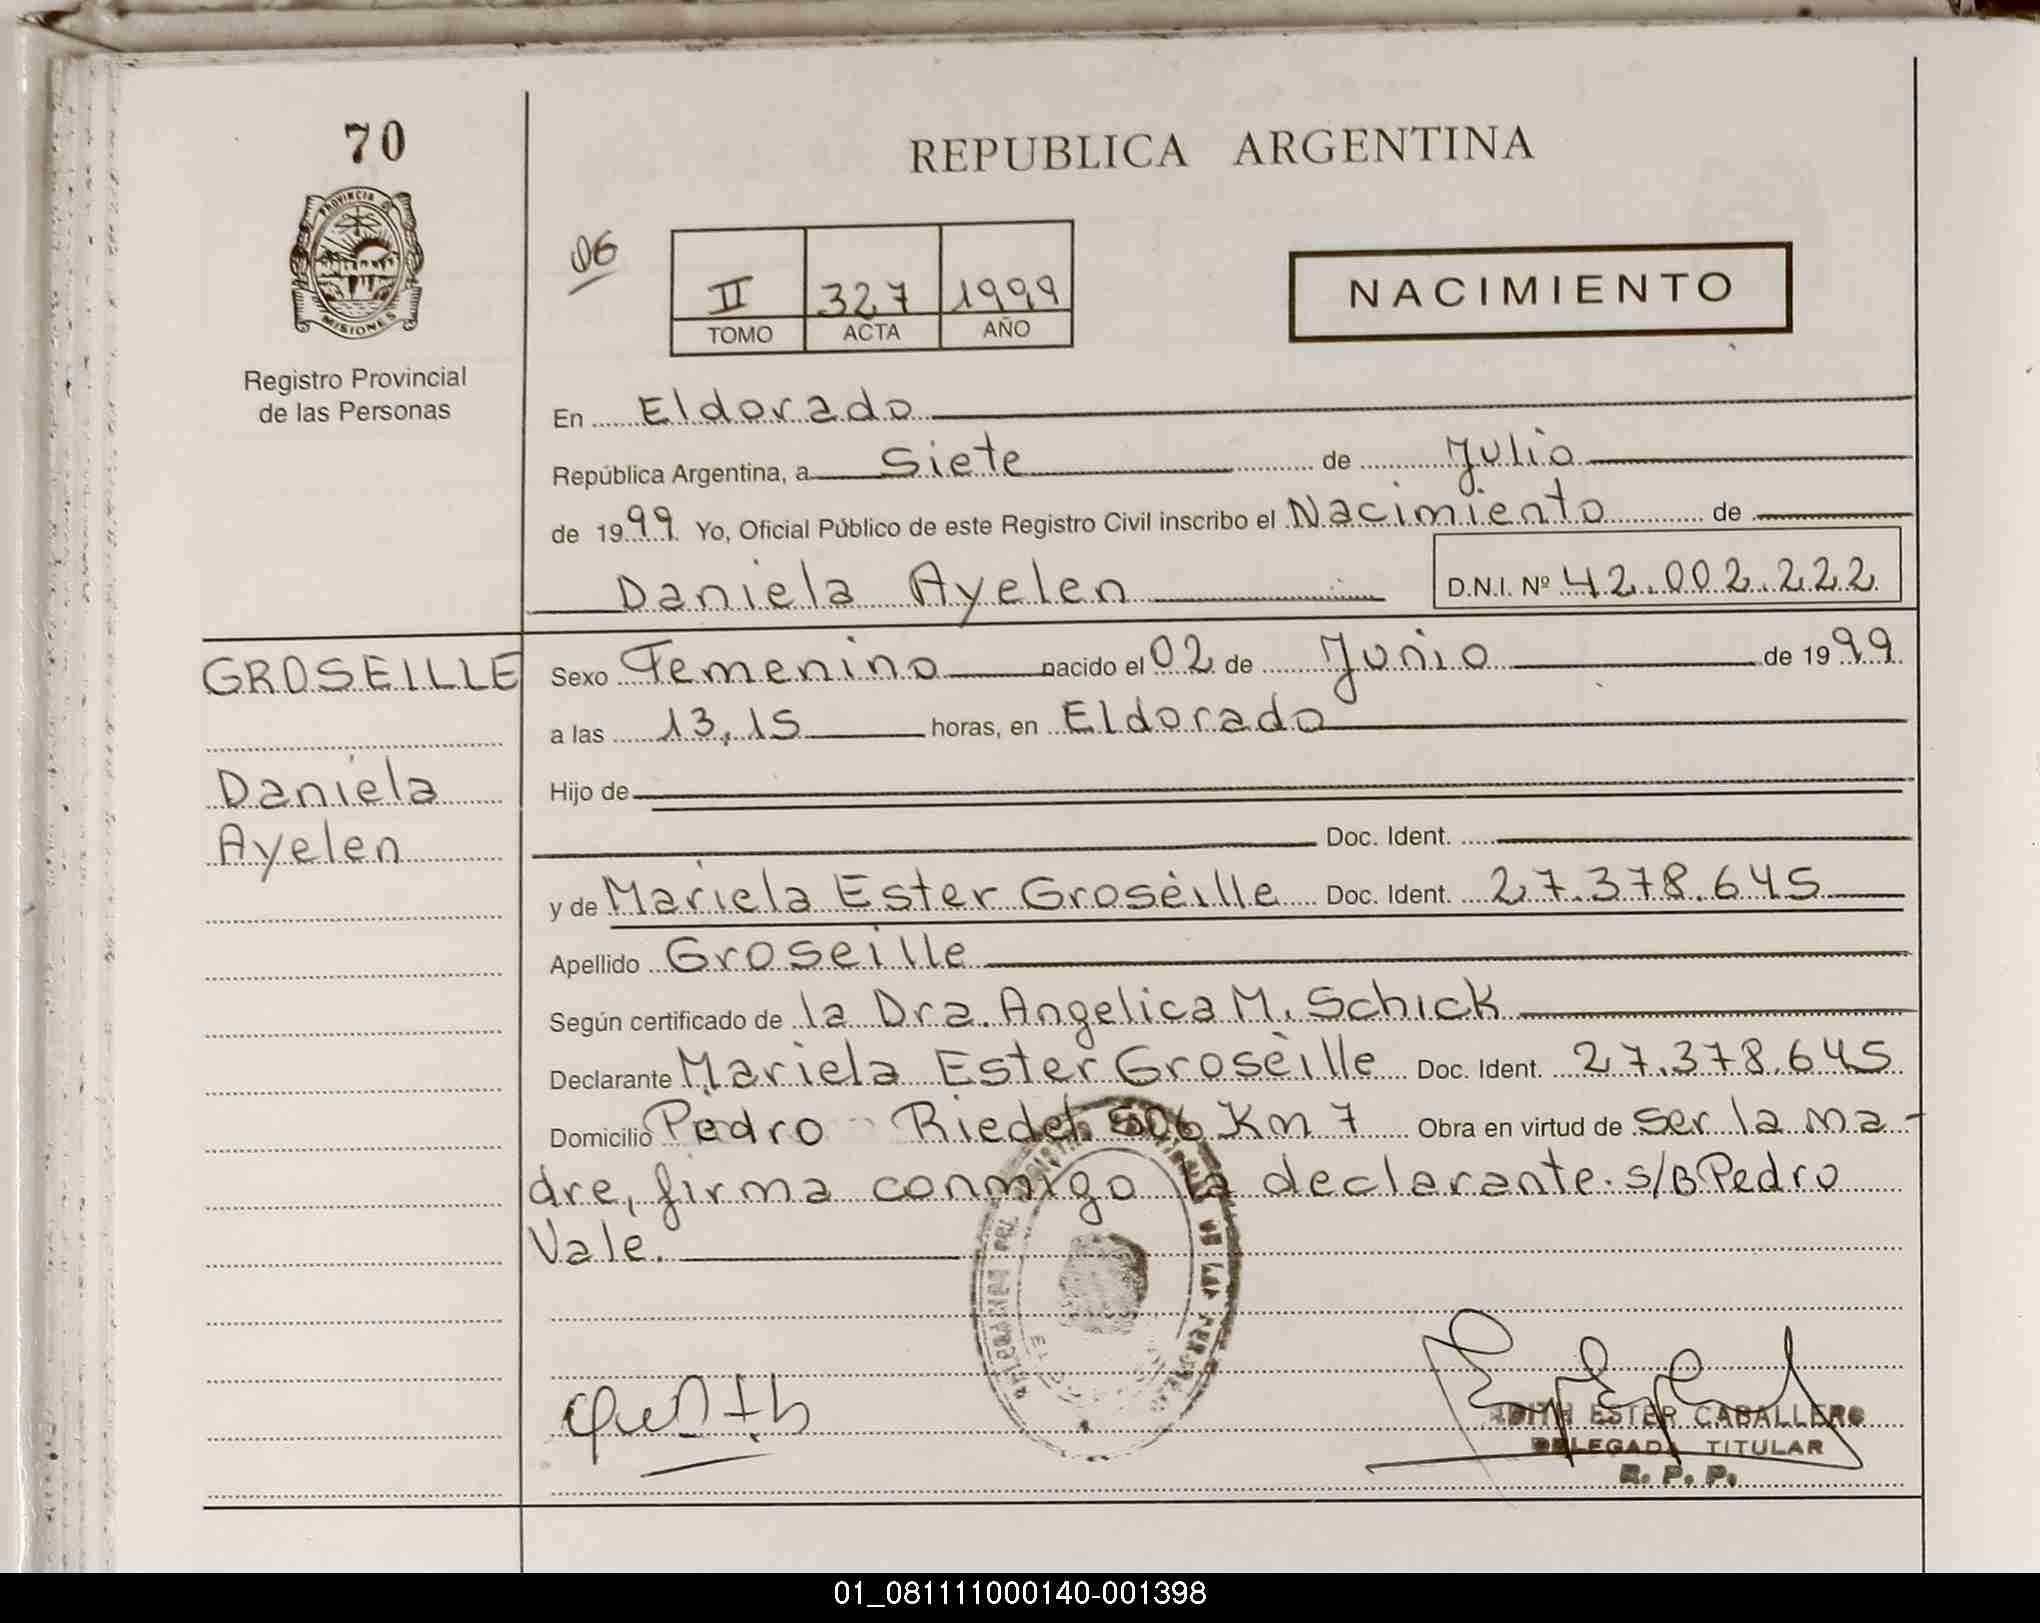 70
PROVINCIA D
MISIONES
Registro Provincial
de las Personas
REPUBLICA ARGENTINA
06
II 327 1999
TOMO ACTA AÑO
NACIMIENTO
En Eldorado
República Argentina, a Siete de Julio
de 1999 Yo, Oficial Público de este Registro Civil inscribo el Nacimiento de
Daniela Ayelen D.N.I. Nº 42.002.222
GROSEILLE
Daniela
Ayelen
Sexo Femenino nacido el 02 de Junio de 1999
a las 13,15 horas, en Eldorado
Hijo de
Doc. Ident.
y de Mariela Ester Groseille Doc. Ident. 27.378.645
Apellido Groseille
Según certificado de la Dra. Angelica M. Schick
Declarante Mariela Ester Groseille Doc. Ident. 27.378.645
Domicilio Pedro Riedel 506 Km 7 Obra en virtud de ser la ma-
dre, firma conmigo la declarante. s/B Pedro
Vale.
EDITH ESTER CABALLERO
DELEGADA TITULAR
R. P. P.
01_081111000140-001398